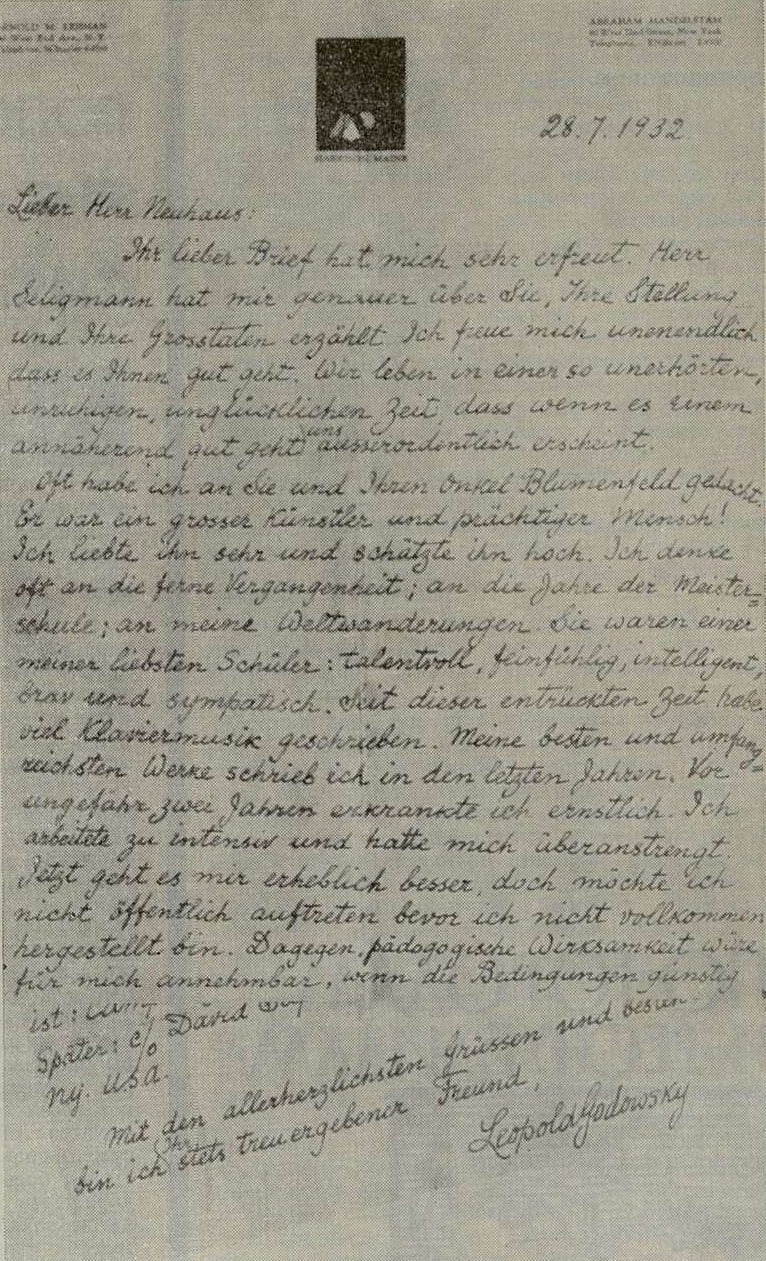 ABRAHAM MANDELSTAM
New York
28.7.1932
Lieber Herr Neuhaus:
Ihr lieber Brief hat mich sehr erfreut. Herr
Seligmann hat mir genauer über Sie, Ihre Stellung
und Ihre Grosstaten erzählt. Ich freue mich unenendlich
dass es Ihnen gut geht. Wir leben in einer so unerhörten,
unruhigen, unglücklichen Zeit, dass wenn es einem
annäherend gut geht, uns ausserordentlich erscheint.
Oft habe ich an Sie und Ihren Onkel Blumenfeld gedacht.
Er war ein grosser Künstler und prächtiger Mensch!
Ich liebte ihn sehr und schätzte ihn hoch. Ich denke
oft an die ferne Vergangenheit; an die Jahre der Meister=
schule; an meine Weltwanderungen. Sie waren einer
meiner liebsten Schüler: talentvoll, feinfühlig, intelligent,
brav und sympatisch. Seit dieser entrückten Zeit habe
viel Klaviermusik geschrieben. Meine besten und umfang=
reichsten Werke schrieb ich in den letzten Jahren. Vor
ungefähr zwei Jahren erkrankte ich ernstlich. Ich
arbeitete zu intensiv und hatte mich überanstrengt.
Jetzt geht es mir erheblich besser, doch möchte ich
nicht öffentlich auftreten bevor ich nicht vollkommen
hergestellt bin. Dagegen, pädogogische Wirksamkeit wäre
für mich annehmbar, wenn die Bedingungen günstig
ist:
Später: c/o David
Ny. USA.
Mit den allerherzlichsten Grüssen und
bin ich Ihr stets treuergebener Freund,
Leopold Godowsky